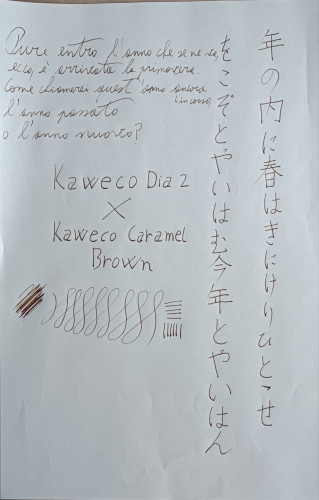 Pure entro l'anno che se ne va,
ecco, è arrivata la primavera.
Come chiamerai quest'anno ancora
in corso,
l'anno passato
o l'anno nuovo?
Kaweco Dia 2
×
Kaweco Caramel
Brown
年の内に春はきにけりひとこせ
をこぞとやいはむ今年とやいはん